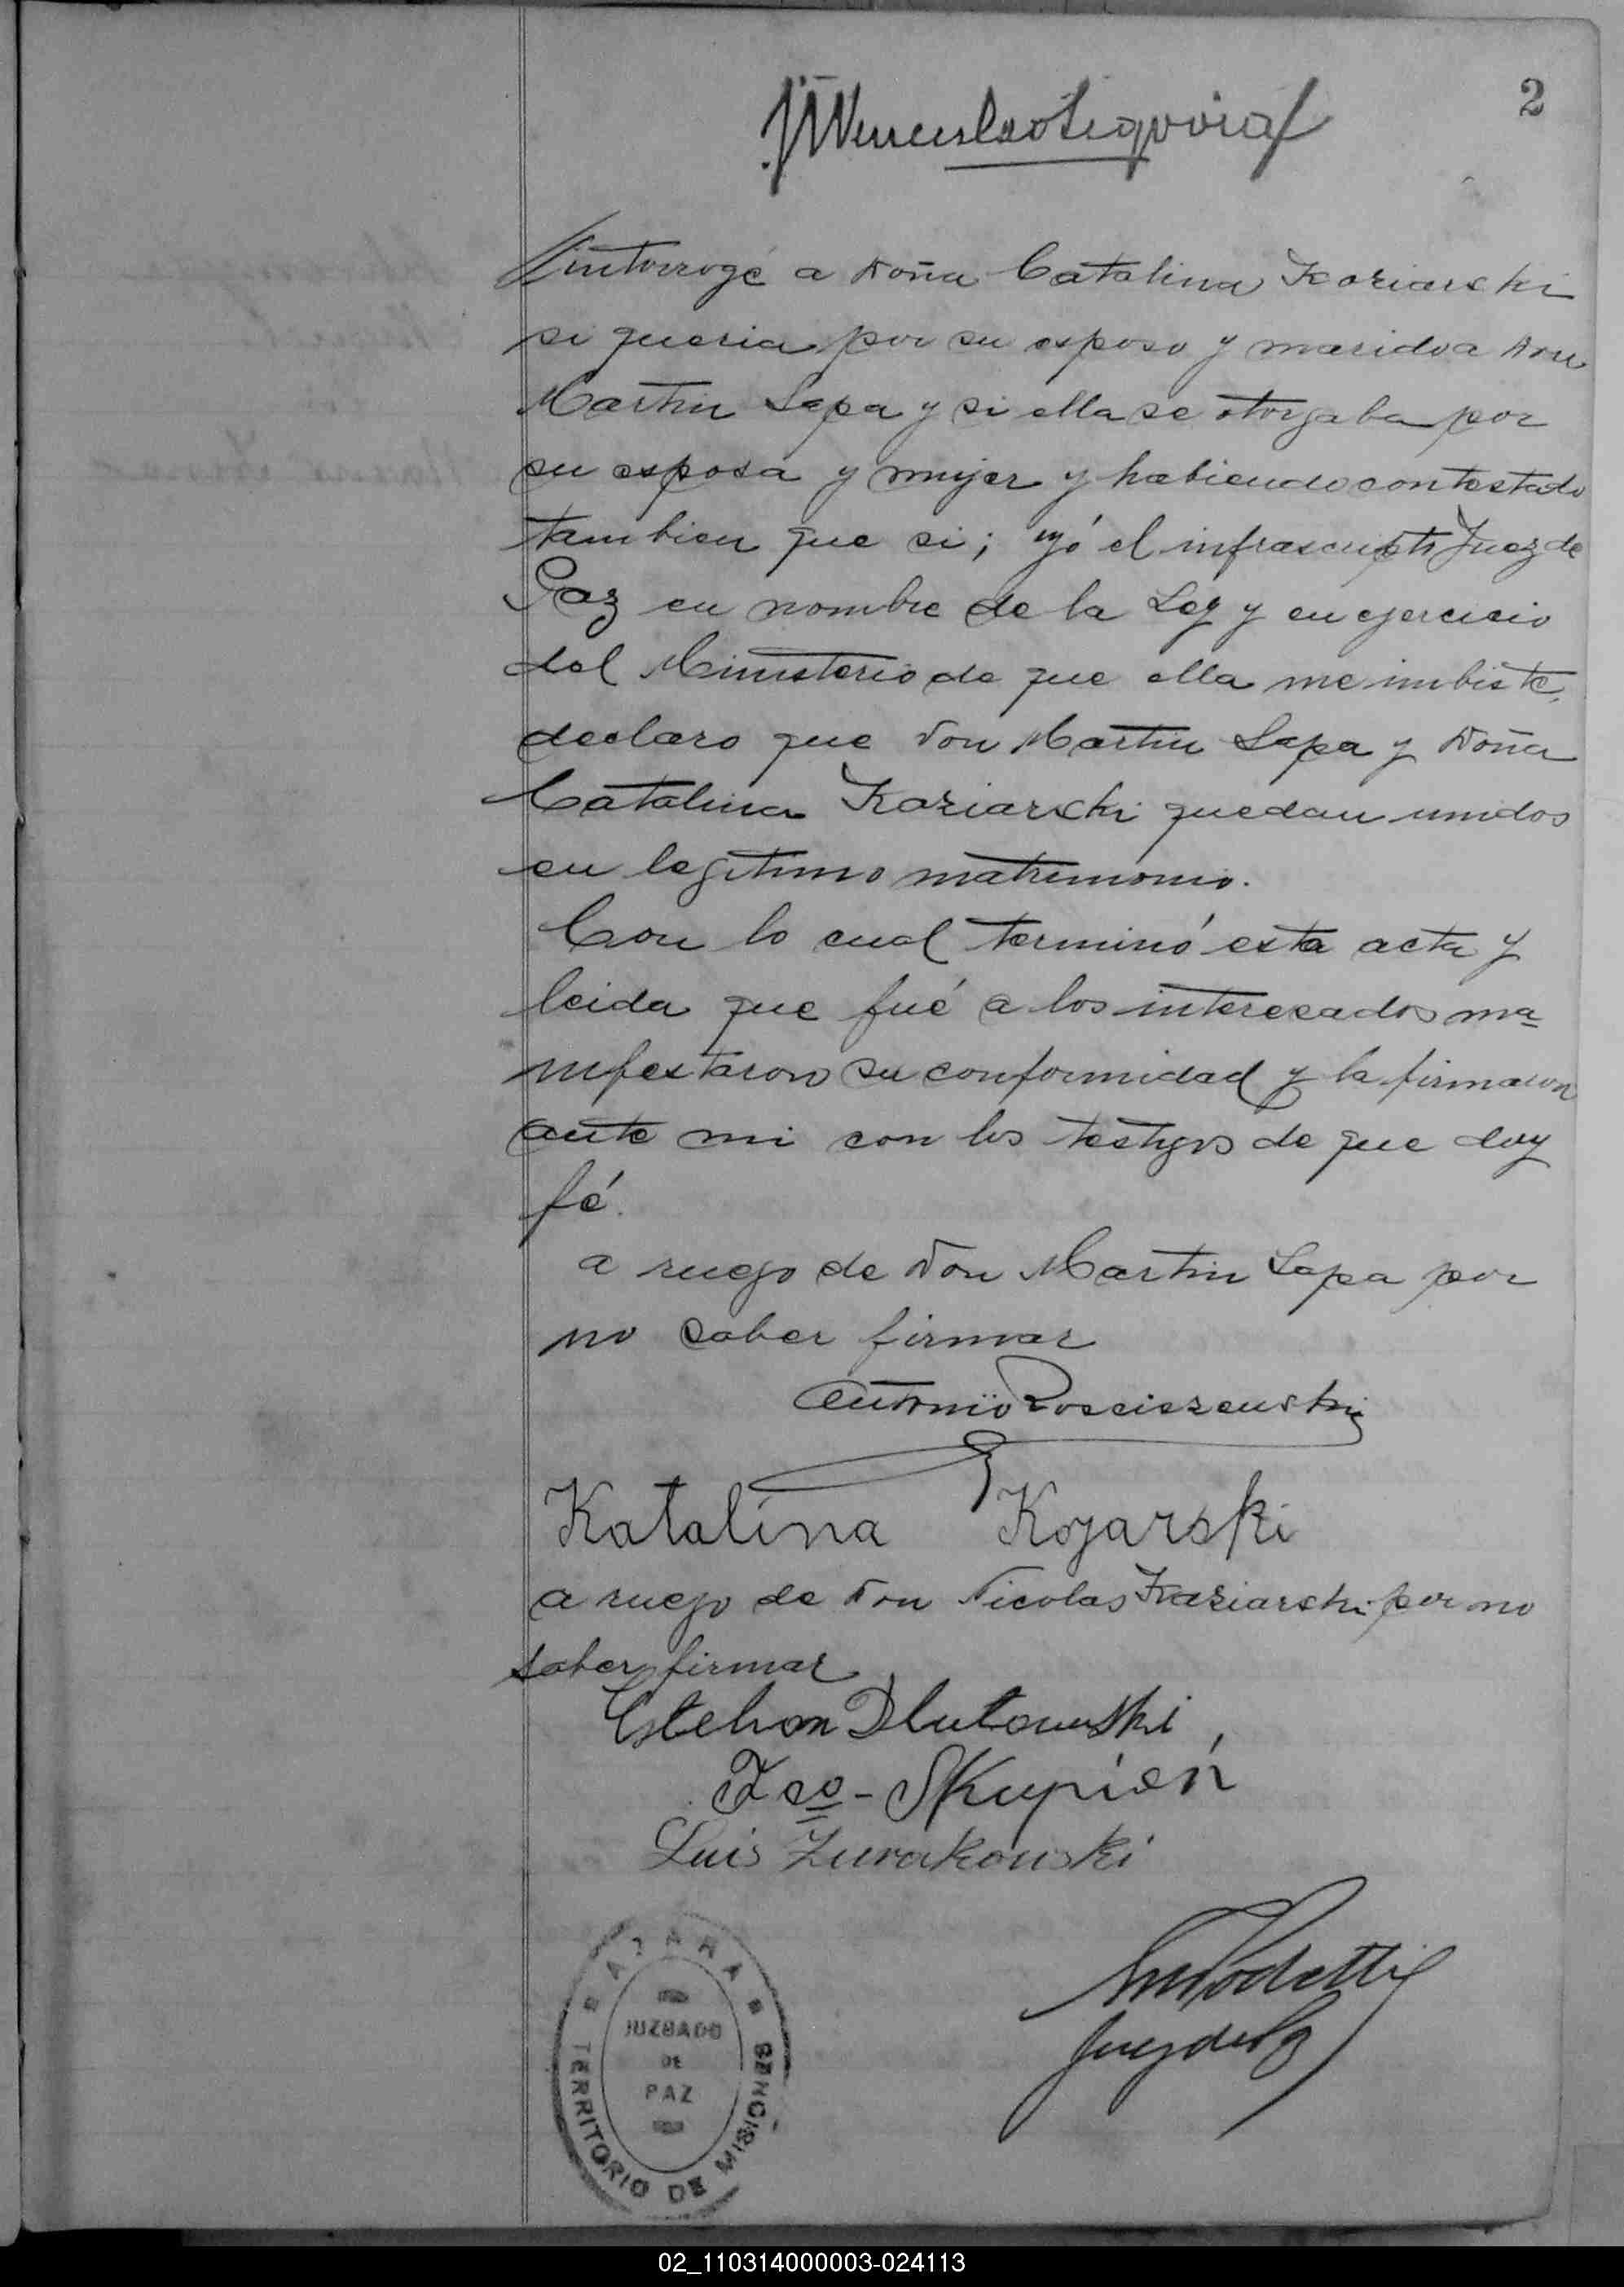 2
interrogé a Doña Catalina Koziarski
si queria por su esposo y marido a Don
Martin Lapa y si ella se otorgaba por
su esposa y mujer y habiendo contestado
tambien que si; yó el infrascripto Juez de
Paz en nombre de la Ley y en ejercicio
del Ministerio de que ella me imbiste,
declaro que Don Martin Lapa y Doña
Catalina Koziarski quedan unidos
en legitimo matrimonio.
Con lo cual terminó esta acta y
leida que fué a los interesados ma=
nifestaron su conformidad y la firmaron
ante mi con los testigos de que doy
fé.
a ruego de Don Martin Lapa por
no saber firmar
Antonio Rosciszewski
Katalina Kojarski
a ruego de Don Nicolas Koziarski por no
saber firmar
Esteban Dlutowski
Fco - Skupień
Luis Zurakowski
Juez de Paz
AZARA
JUZGADO
DE
PAZ
TERRITORIO DE MISIONES
02_110314000003-024113